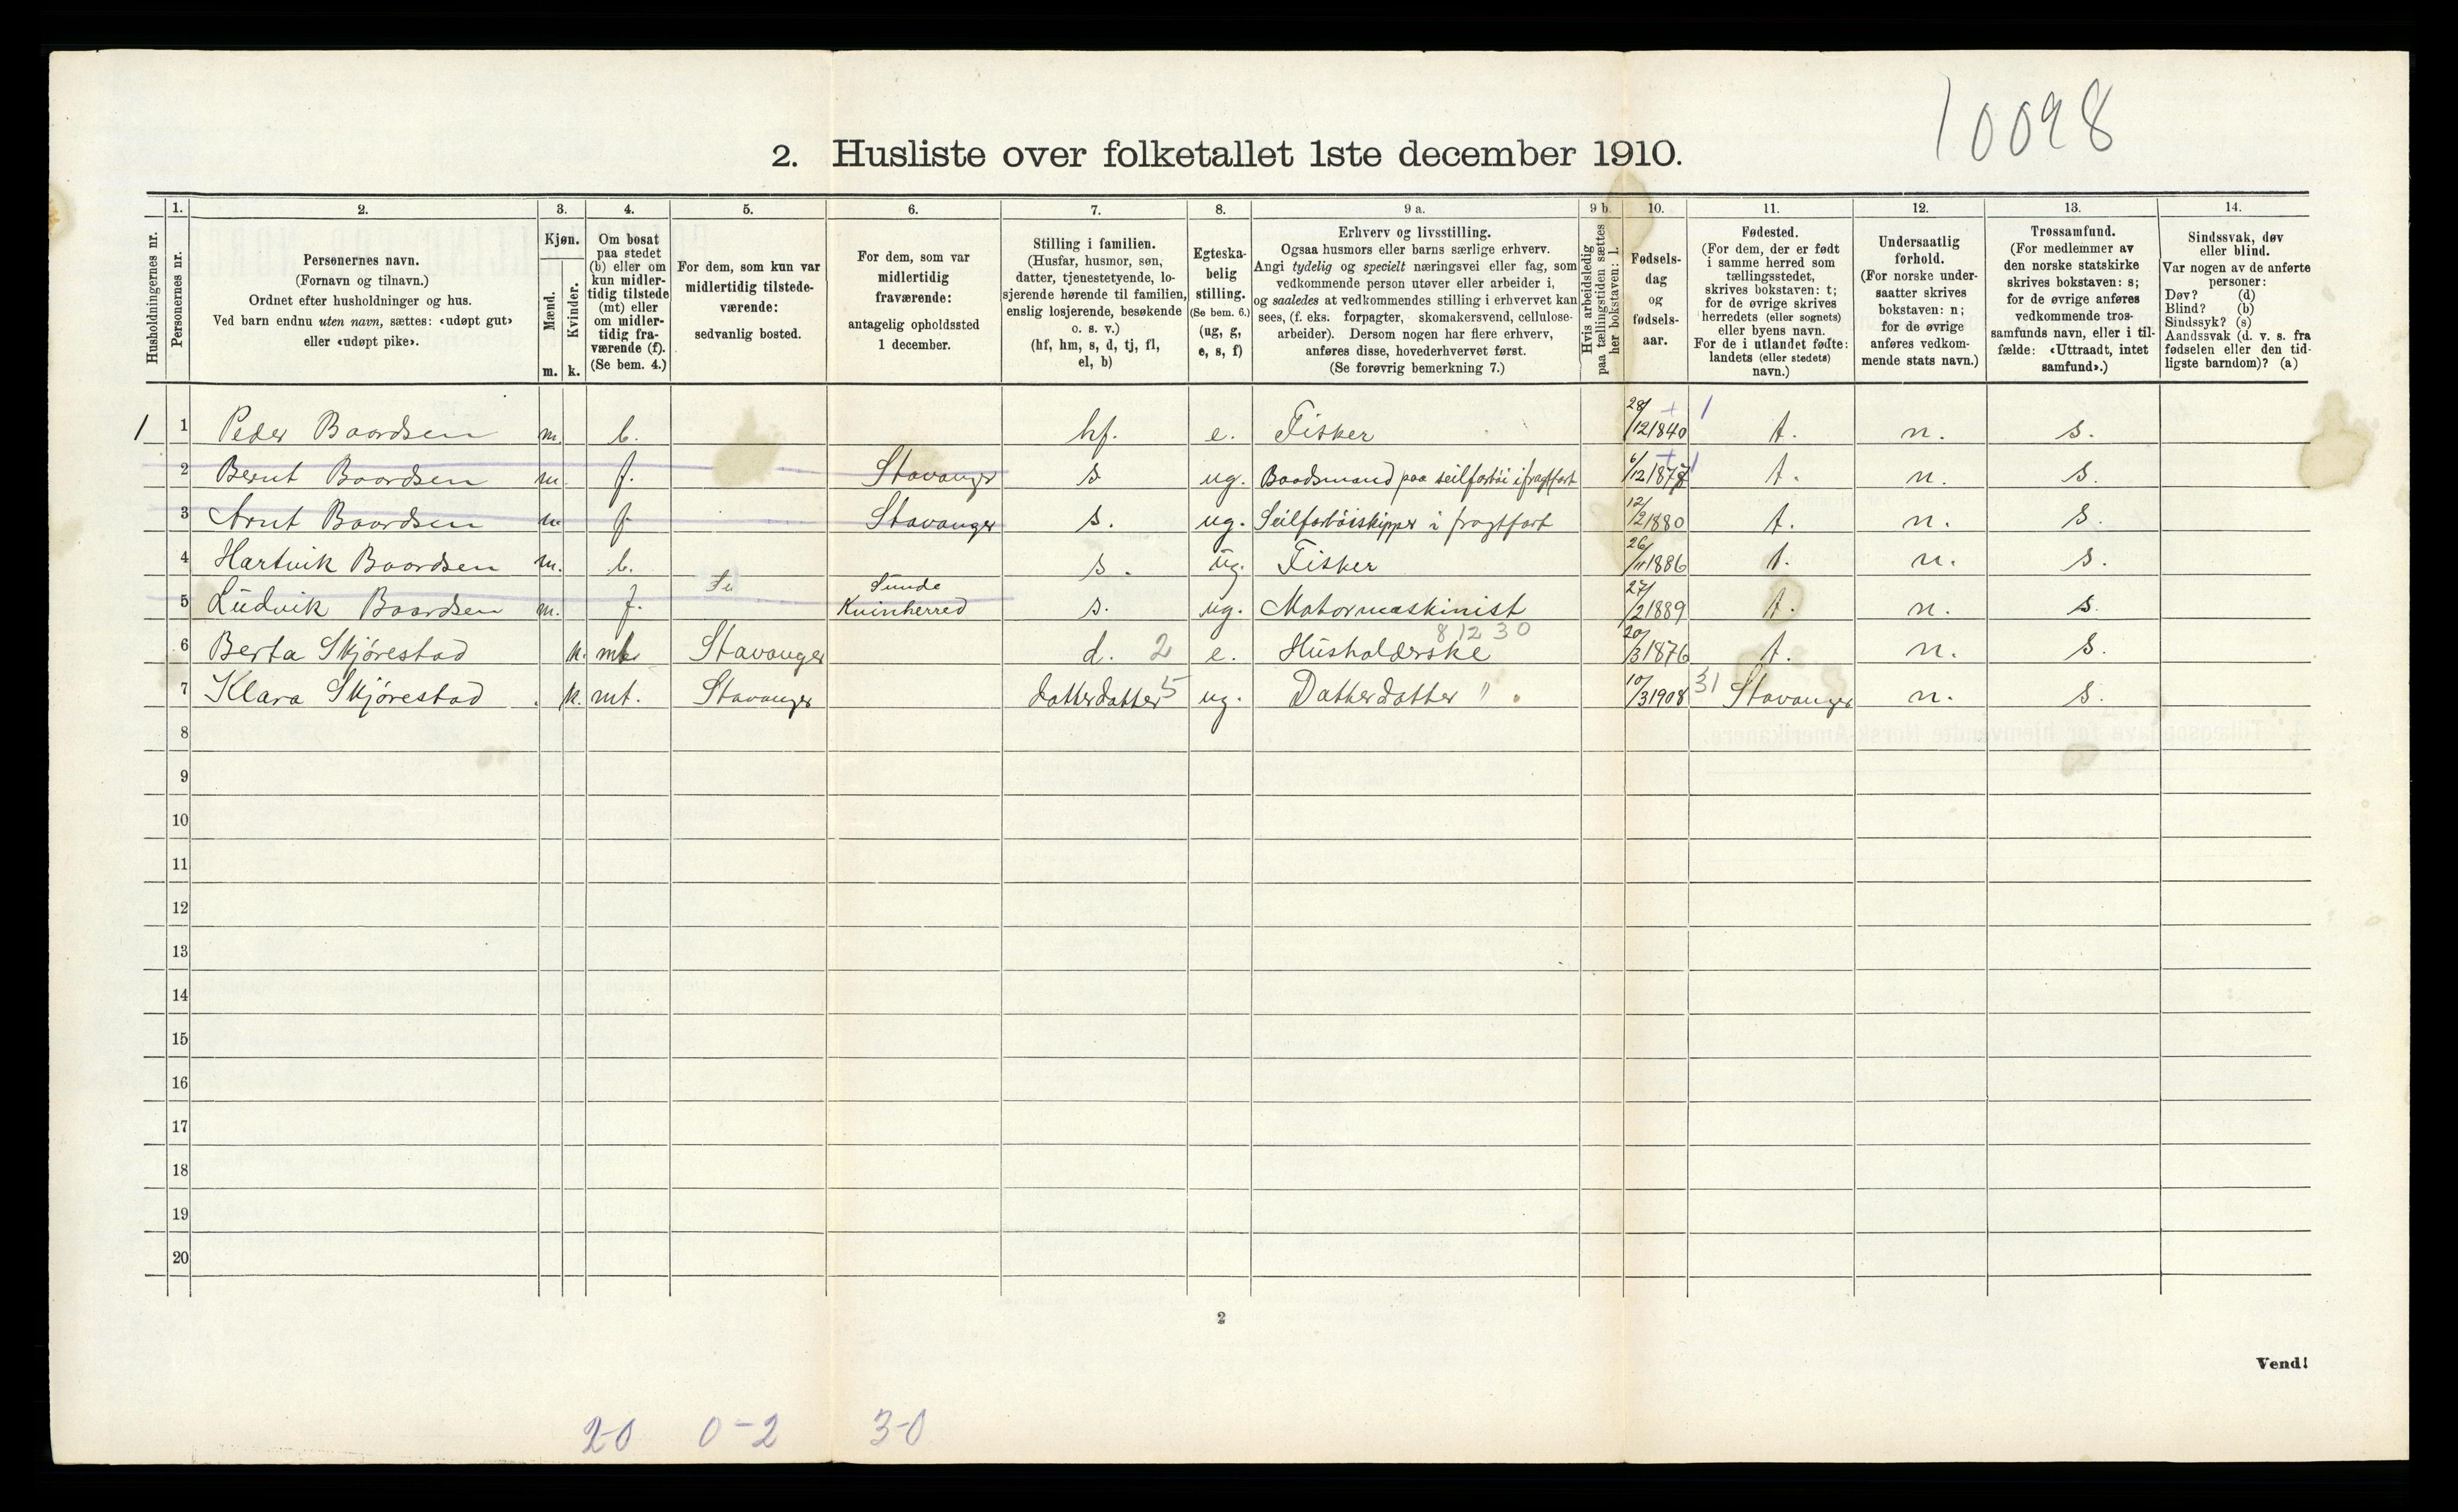 10098
2. Husliste over folketallet 1ste december 1910.
Husholdningernes nr.
1. Personernes nr.
2. Personernes navn.
(Fornavn og tilnavn.)
Ordnet efter husholdninger og hus.
Ved barn endnu uten navn, sættes: «udøpt gut»
eller «udøpt pike».
3. Kjøn.
Mænd. m.
Kvinder. k.
4. Om bosat
paa stedet
(b) eller om
kun midler-
tidig tilstede
(mt) eller
om midler-
tidig fra-
værende (f).
(Se bem. 4.)
5. For dem, som kun var
midlertidig tilstede-
værende:
sedvanlig bosted.
6. For dem, som var
midlertidig
fraværende:
antagelig opholdssted
1 december.
7. Stilling i familien.
(Husfar, husmor, søn,
datter, tjenestetyende, lo-
sjerende hørende til familien,
enslig losjerende, besøkende
o. s. v.)
(hf, hm, s, d, tj, fl,
el, b)
8. Egteska-
belig
stilling.
(Se bem. 6.)
(ug, g,
e, s, f)
9 a. Erhverv og livsstilling.
Ogsaa husmors eller barns særlige erhverv.
Angi tydelig og specielt næringsvei eller fag, som
vedkommende person utøver eller arbeider i,
og saaledes at vedkommendes stilling i erhvervet kan
sees, (f. eks. forpagter, skomakersvend, cellulose-
arbeider). Dersom nogen har flere erhverv,
anføres disse, hovederhvervet først.
(Se forøvrig bemerkning 7.)
9 b. Hvis arbeidsledig
paa tællingstiden sættes
her bokstaven: l.
10. Fødsels-
dag
og
fødsels-
aar.
11. Fødested.
(For dem, der er født
i samme herred som
tællingsstedet,
skrives bokstaven: t;
for de øvrige skrives
herredets (eller sognets)
eller byens navn.
For de i utlandet fødte:
landets (eller stedets)
navn.)
12. Undersaatlig
forhold.
(For norske under-
saatter skrives
bokstaven: n;
for de øvrige
anføres vedkom-
mende stats navn.)
13. Trossamfund.
(For medlemmer av
den norske statskirke
skrives bokstaven: s;
for de øvrige anføres
vedkommende tros-
samfunds navn, eller i til-
fælde: «Uttraadt, intet
samfund».)
14. Sindssvak, døv
eller blind.
Var nogen av de anførte
personer:
Døv? (d)
Blind? (b)
Sindssyk? (s)
Aandssvak (d. v. s. fra
fødselen eller den tid-
ligste barndom)? (a)
1 1 Peder Baardsen m. b. hf. e. Fisker 28/12 1840 t. n. s.
2 Bernt Baardsen m. f. Stavanger s ug. Baadsmand paa seilfartøi i fragtfart 6/12 1877 t. n. s.
3 Arnt Baardsen m. f Stavanger s. ug. Seilfartøiskipper i fragtfart 12/2 1880 t. n. s.
4 Hartvik Baardsen m. b. s. ug. Fisker 26/11 1886 t. n. s.
5 Ludvik Baardsen m. f. Su Sunde Kvinherred s. ug. Motormaskinist 27/2 1889 t. n. s.
6 Berta Skjørestad k. mt Stavanger d. 2 e. Husholderske 8 12 30 20/3 1876 t. n. s.
7 Klara Skjørestad k. mt. Stavanger datterdatter 5 ug. Datterdatter " 10/3 1908 31 Stavanger n. s.
8
9
10
11
12
13
14
15
16
17
18
19
20
2
Vend!
2-0 0-2 3-0